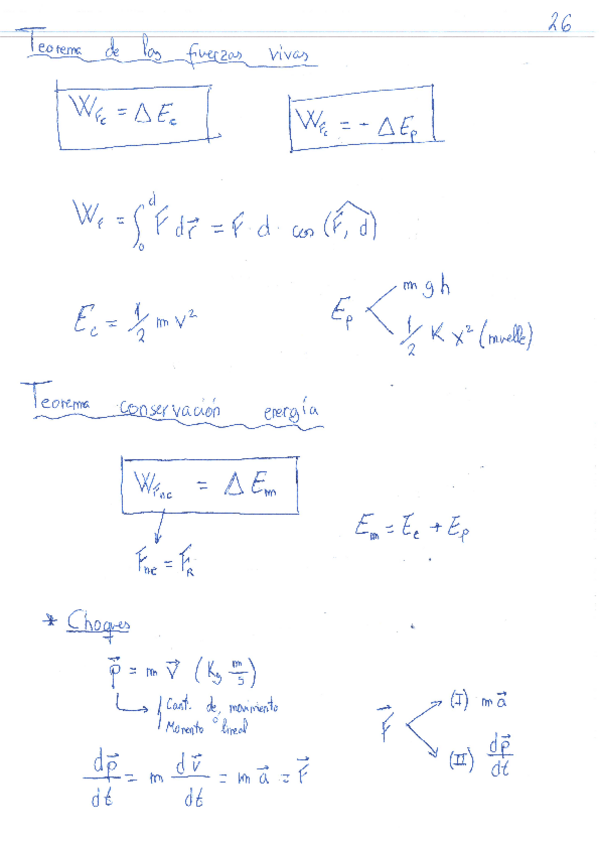 26
Teorema de las fuerzas vivas
W_Fc = Δ E_c
W_Fc = - Δ E_p
W_F = ∫₀ᵈ F⃗ dr⃗ = F · d · cos (F⃗, d)
E_c = 1/2 m v²
E_p < m g h
1/2 K x² (muelle)
Teorema conservación energía
W_Fnc = Δ E_m
F_nc = F_R
E_m = E_c + E_p
* Choques
p⃗ = m v⃗ (Kg m/s)
Cant. de movimiento
Momento lineal
F⃗
(I) m a⃗
(II) dp⃗/dt
dp⃗/dt = m dv⃗/dt = m a⃗ = F⃗